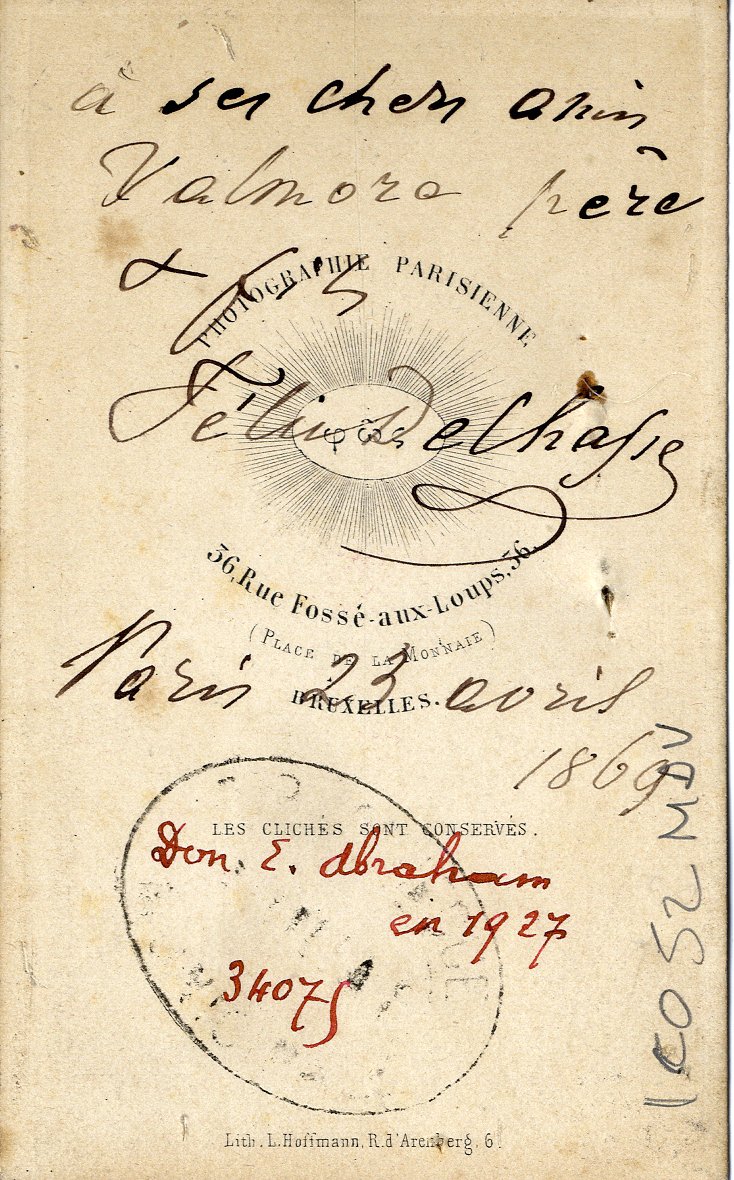 à ses chers amis
Valmore père
& fils
PHOTOGRAPHIE PARISIENNE
Félix Delhasse
36, Rue Fossé-aux-Loups, 36.
(PLACE DE LA MONNAIE)
BRUXELLES.
Paris 23 avril
1869
LES CLICHÉS SONT CONSERVÉS.
Don. E. Abraham
en 1927
34075
Lith. L. Hoffmann, R. d'Arenberg, 6.
ICO 52 MDV